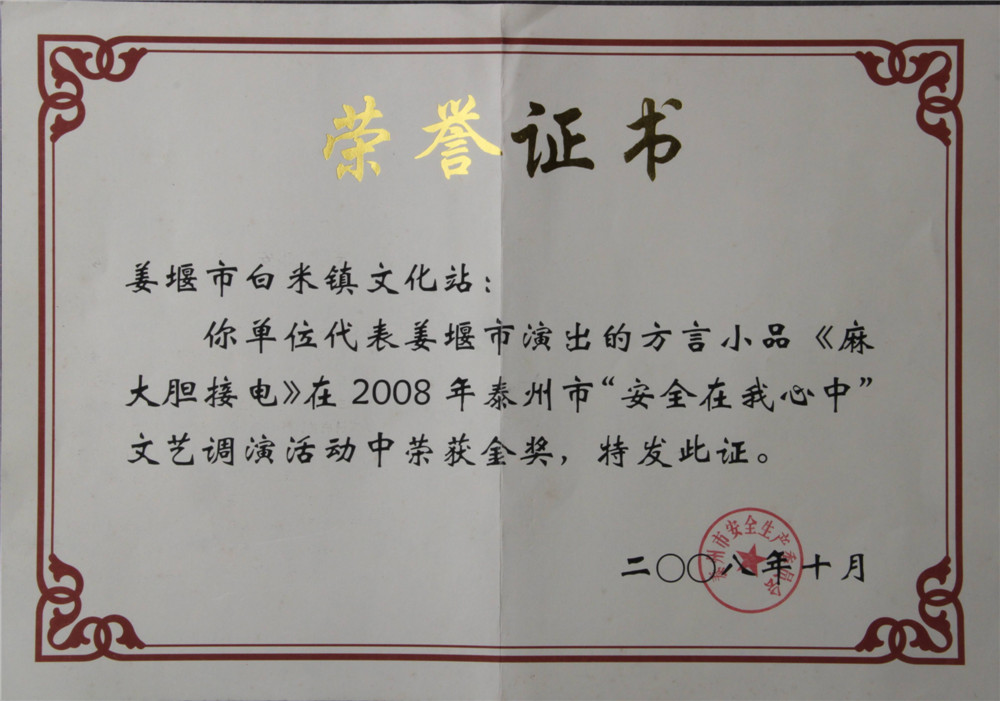 荣誉证书
姜堰市白米镇文化站：
你单位代表姜堰市演出的方言小品《麻
大胆接电》在2008年泰州市“安全在我心中”
文艺调演活动中荣获金奖，特发此证。
二〇〇八年十月
泰州市安全生产委员会